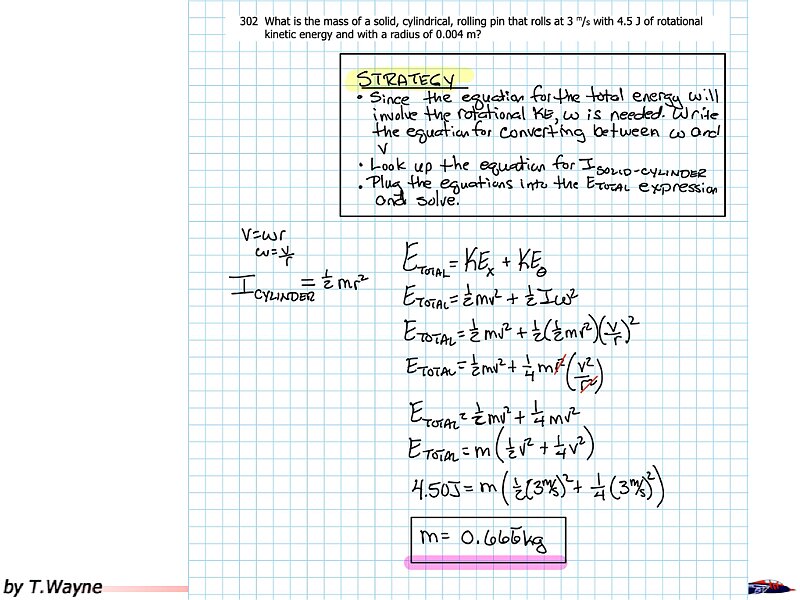 302 What is the mass of a solid, cylindrical, rolling pin that rolls at 3 m/s with 4.5 J of rotational
kinetic energy and with a radius of 0.004 m?
STRATEGY
• Since the equation for the total energy will
involve the rotational KE, ω is needed. Write
the equation for converting between ω and
v
• Look up the equation for I SOLID-CYLINDER
• Plug the equations into the E TOTAL expression
and solve.
V=ωr
ω=v/r
I CYLINDER = 1/2 mr²
E TOTAL = KE x + KE θ
E TOTAL = 1/2 mv² + 1/2 Iω²
E TOTAL = 1/2 mv² + 1/2 (1/2 mr²)(v/r)²
E TOTAL = 1/2 mv² + 1/4 mr² (v²/r²)
E TOTAL = 1/2 mv² + 1/4 mv²
E TOTAL = m (1/2 v² + 1/4 v²)
4.50J = m (1/2 (3 m/s)² + 1/4 (3 m/s)²)
m = 0.666̅ kg
by T.Wayne